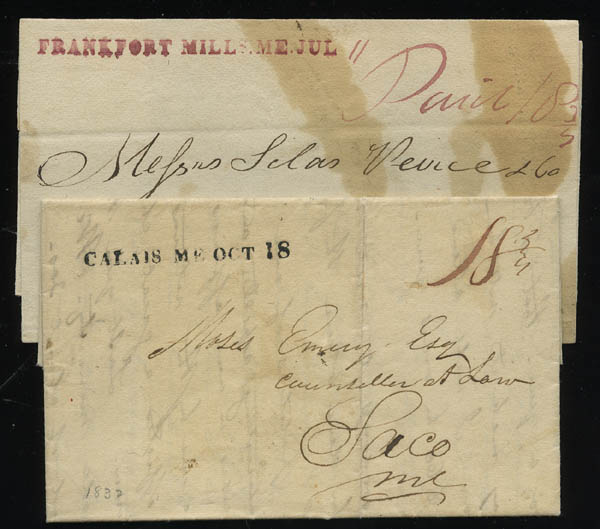 FRANKFORT MILLS.ME.JUL 11
Paid 18 3/4
Messrs Silas Peirce & Co
CALAIS ME OCT 18
18 3/4
Moses Emery Esq
Counseller At Law
Saco
Me
1832